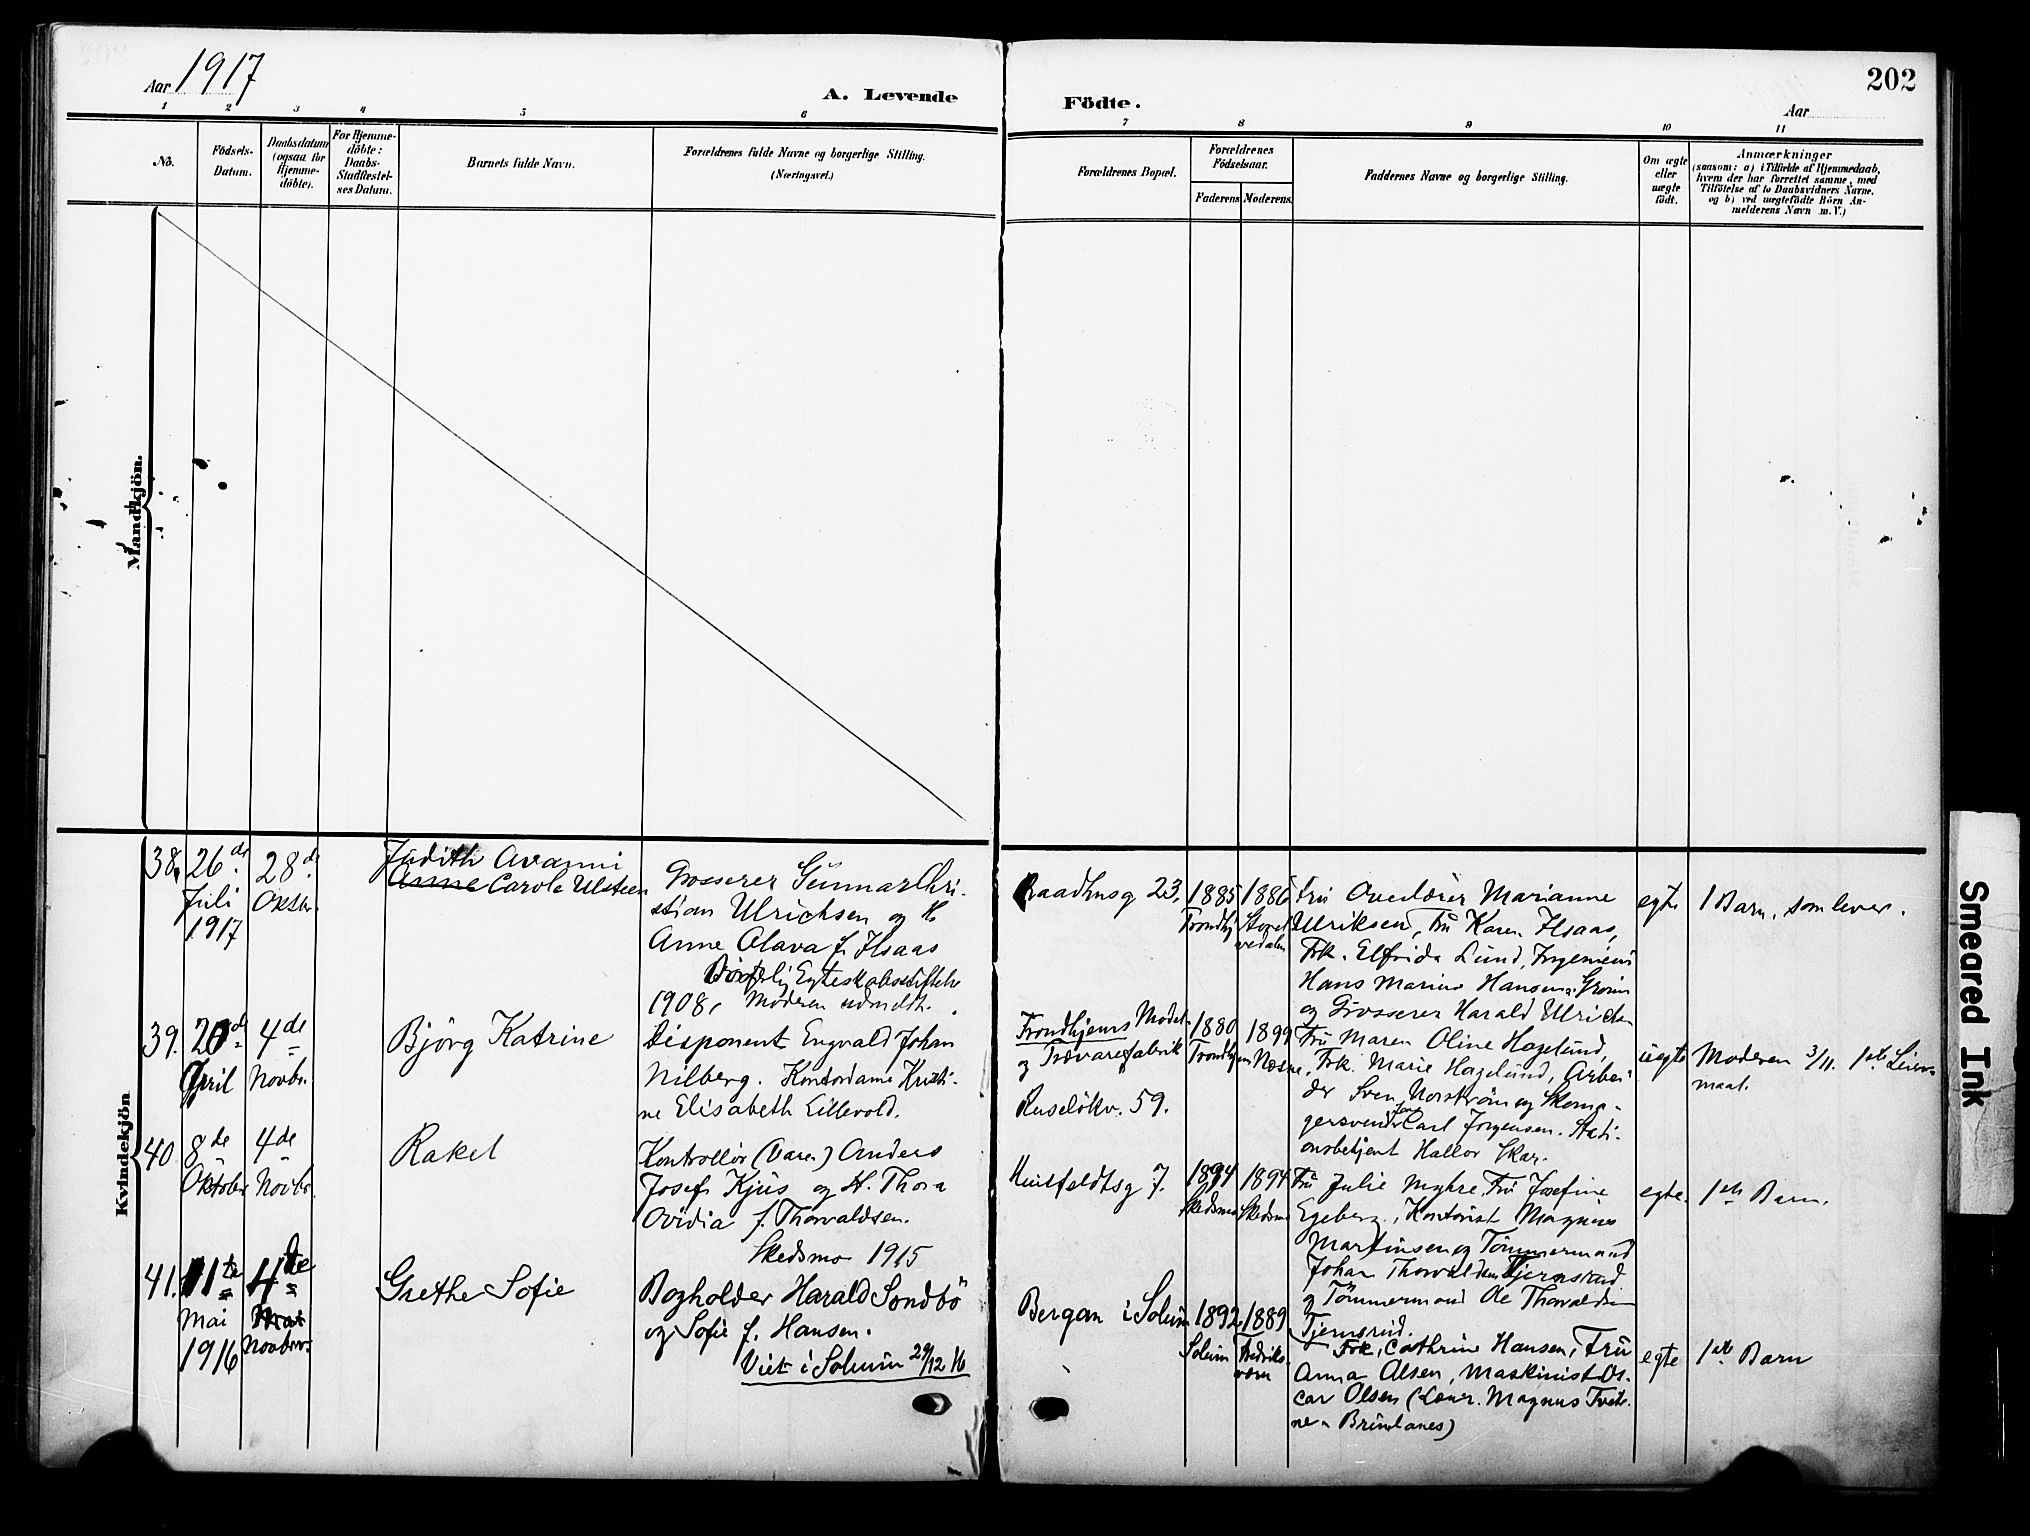 Aar 1917
A. Levende
Födte.
Aar
202
1 2 3 4 5 6 7 8 9 10 11
Nö.
Födsels-
Datum.
Daabsdatum
(ogsaa for
Hjemme-
döbte).
For Hjemme-
döbte:
Daabs-
Stadfæstel-
ses Datum.
Barnets fulde Navn.
Forældrenes fulde Navne og borgerlige Stilling.
(Næringsvei.)
Forældrenes Bopæl.
Forældrenes
Födselsaar.
Faderens
Moderens.
Faddernes Navne og borgerlige Stilling.
Om ægte
eller
uægte
födt.
Anmærkninger
(saasom: a) i Tilfælde af Hjemmedaab,
hvem der har forrettet samme, med
Tilföielse af to Daabsvidners Navne,
og b) ved uægtefödte Börn An-
melderens Navn m.V.)
Mandkjön.
Kvindekjön
38.
26de
Juli
1917
28de
Oktbr.
Judith Avanni
Anne Carole Ulsteen
Grosserer Gunnar Chri-
stian Ulrichsen og H.
Anne Olava f. Isaas
Borgerlig Egteskabsstiftelse
1908, Moderen udmeldt.
Raadhusg 23,
1885
Trondhj
1886
Fru Marianne
Ulriksen, Fru Karen Isaas,
Frk. Elfrida Lund, Ingeniør
Hans Marius Hansen
og Grosserer Harald Ulrichsen
egte
1 Barn, som lever.
39.
20de
April
4de
Novbr.
Bjørg Katrine
Disponent Engvald Johan
Nilberg. Kontordame Kristi-
ne Elisabeth Lillevold.
Trondhjems Model-
og Trævarefabrik
Ruseløkv. 59.
1880
Trondhjem
1899
Næsne
Fru Maren Oline Hagelund,
Frk. Marie Hagelund, Arbei-
der Sven Norstrøm og Skoma-
gersvend Carl Jørgensen. Stati-
onsbetjent Hallor Skar.
uegte
Moderen 3/11. 1ste Leier-
maal.
40
8de
Oktober
4de
Novbr.
Rakel
Kontrollør (Varer) Anders
Josef Kjus og H. Thora
Ovidia f. Thorvaldsen.
Skedsmo 1915
Huitfeldtsg 7.
1894
Skedsmo
1894
Skedsmo
Fru Julie Myhre, Fru Josefine
Egeberg, Kontorist Magnus
Martinsen og Tømmermand
Johan Thorvaldsen Tjernsrud
og Tømmermand Ole Thorvaldsen
Tjernsrud.
egte.
1ste Barn.
41.
11te
Mai
1916
4de
Mai
Novbr.
Grethe Sofie
Bogholder Harald Sondbö
og Sofie f. Hansen.
Viet i Solum 29/12 16
Bergan i Solum
1892
Solum
1889
Fredriks-
værn
Frk, Cathrine Hansen, Fru
Anna Olsen, Maskinist Os-
car Olsen (Magnus
egte
1ste Barn
Smeared Ink